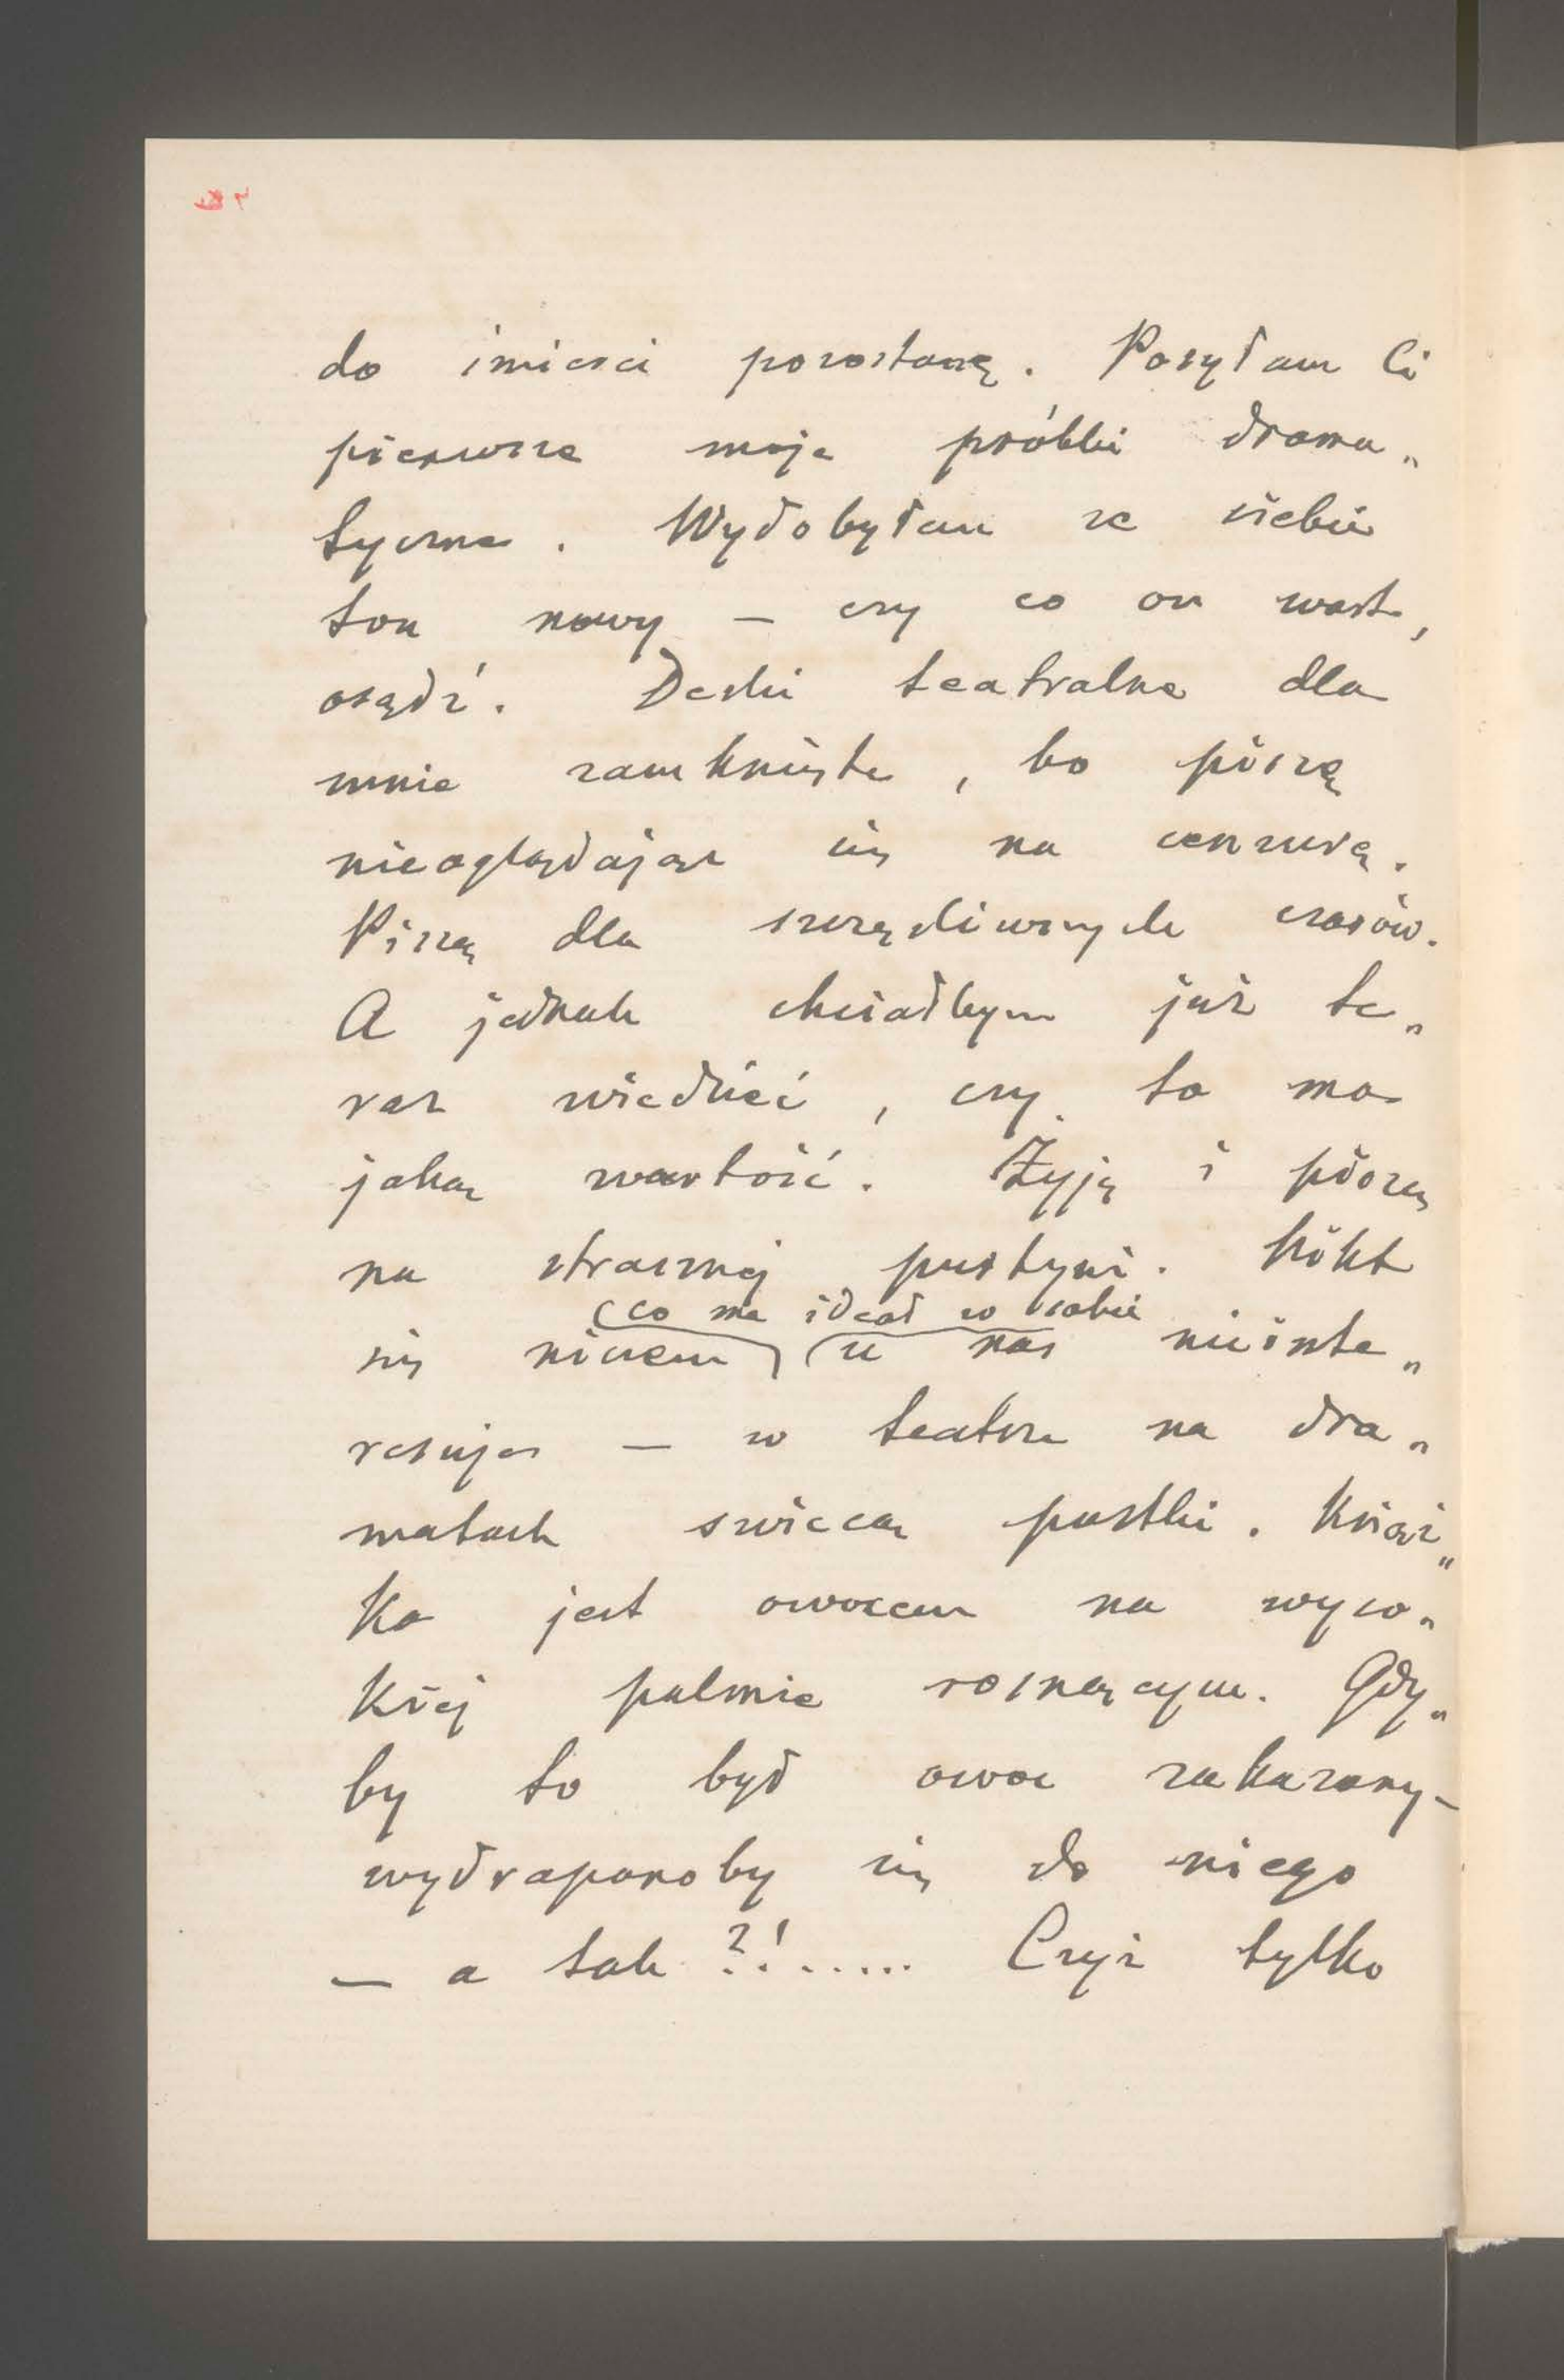 do śmierci pozostanę. Posyłam Ci
pierwsze moje próbki drama„
tyczne. Wydobyłam ze siebie
ton nowy — czy co on wart,
osądź. Deski teatralne dla
mnie zamknięte, bo piszę
nieoglądając się na cenzurę.
Piszę dla szczęśliwszych czasów.
A jednak chciałbym już te„
raz wiedzieć, czy to ma
jaką wartość. Żyję i piszę
na strasznej pustyni. Nikt
co ma ideał w sobie
się niczem u nas nieinte„
resuje — w teatrze na dra„
matach świecą pustki. Książ„
ka jest owocem na wyso„
kiej palmie rosnącym. Gdy„
by to był owoc zakazany —
wydrapanoby się do niego
— a tak ?!..... Czyż tylko